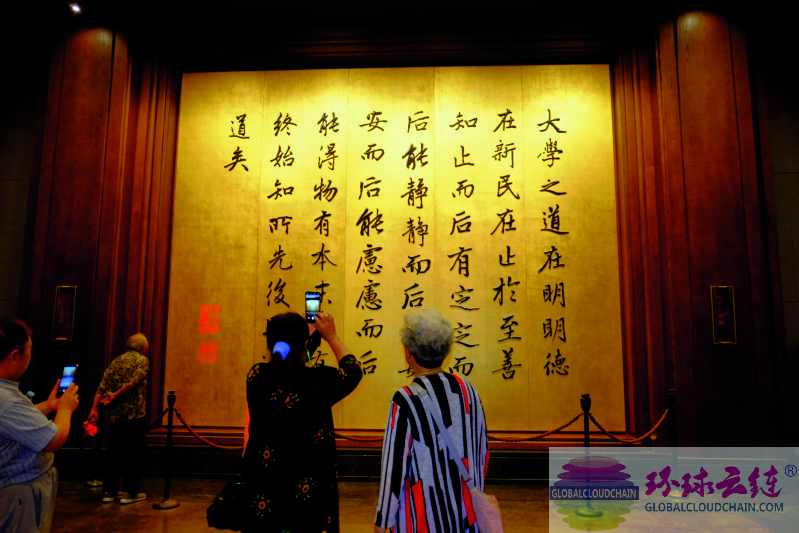 大學之道在明明德
在新民在止於至善
知止而后有定定而
后能靜靜而后
安而后能慮慮而后
能得物有本末
終始知所先後
道矣
GLOBALCLOUDCHAIN
环球云链®
GLOBALCLOUDCHAIN.COM